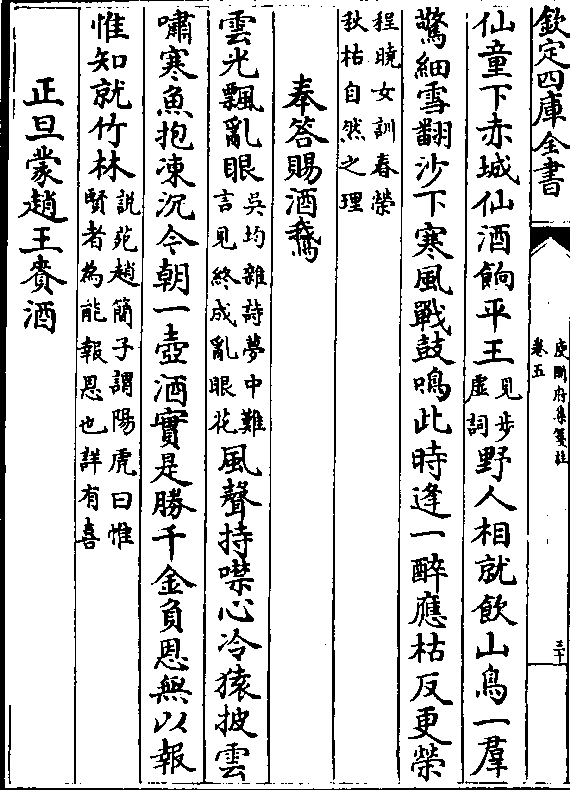 欽定四庫全書
庾開府集箋註
卷五
三十
仙童下赤城仙酒餉平王見步虛詞野人相就飲山鳥一羣
驚細雪翻沙下寒風戰鼓鳴此時逢一醉應枯反更榮
程曉女訓春榮
秋枯自然之理
奉答賜酒鵝
雲光飄亂眼吳均雜詩夢中難言見終成亂眼花風聲持噤心冷猿披雲
嘯寒魚抱凍沉今朝一壺酒實是勝千金負恩無以報
惟知就竹林說苑趙簡子謂陽虎曰惟賢者為能報恩也詳有喜
正旦蒙趙王賚酒